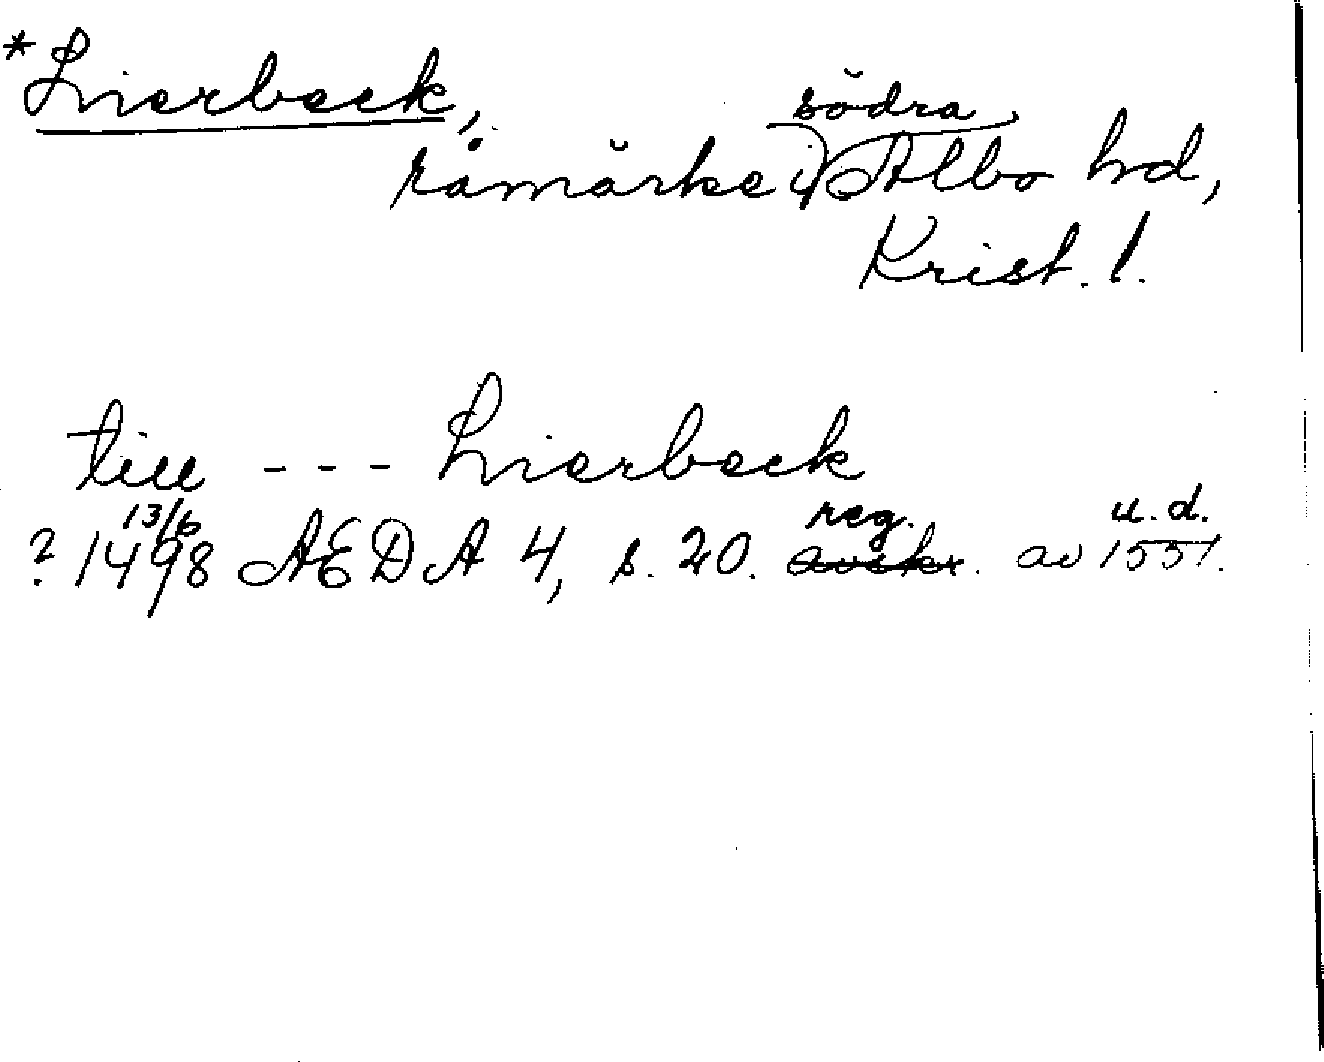 *Lierbeck,
råmärke i södra Albo hd,
Krist. l.
till --- Lierbeck
? 13/6 1498 AEDA 4, s. 20. reg. avskr. av u.d. 1551.